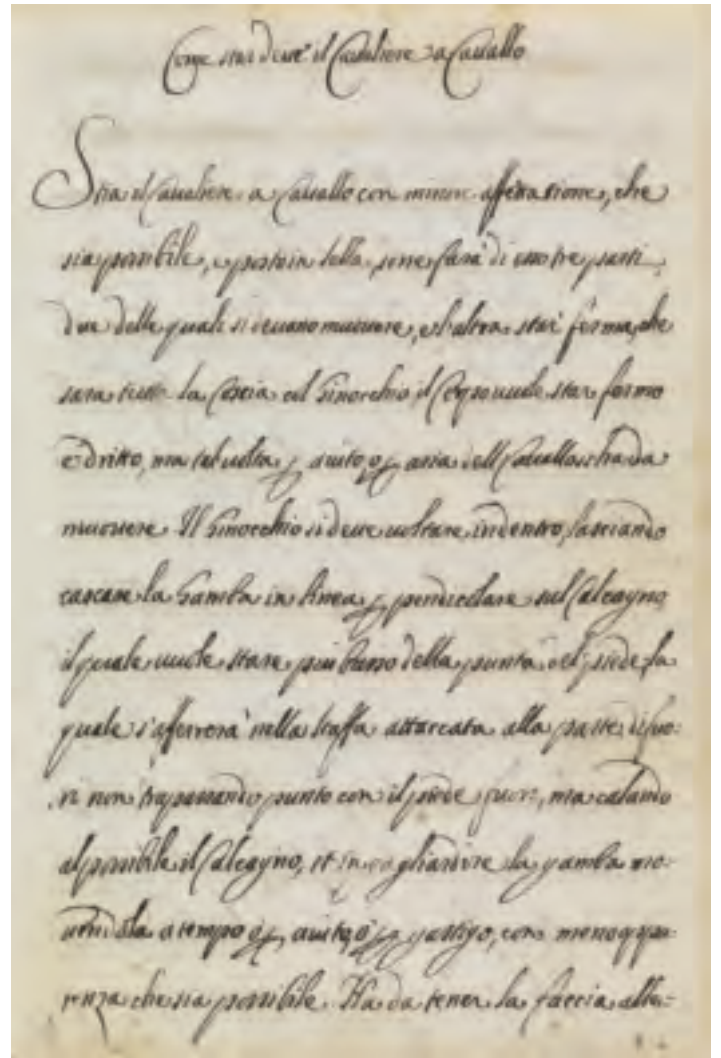 Come star deue il Caualiere à Cauallo
Stia il Caualiere a Cauallo con minore affettatione, che
sia possibile, e posto in sella, ne farà di esso tre parti,
due delle quali si deuano muouere, e l'altra star ferma, che
sara tutta la Coscia col Ginocchio, il Corpo uuole star fermo
è dritto, ma tal uolta ꝑ aiuto, ò ꝑ aria dell Cauallo s'ha da
muouere. Il Ginocchio si deue uoltare indentro, lasciando
cascare la Gamba in linea ꝑpendicolare sul Calcagno,
il quale uuole stare piu basso della punta del piede, la
quale s'afferrerà nella staffa attaccata alla parte di fuo:
ri non trapassando punto con il piede fuori, ma calando
al possibile il Calcagno, et in gagliardire la gamba mo:
uendola a tempo ò ꝑ aiuto, ò ꝑ gastigo, con meno appa:
renza che sia possibile. Ha da tener la faccia alle: